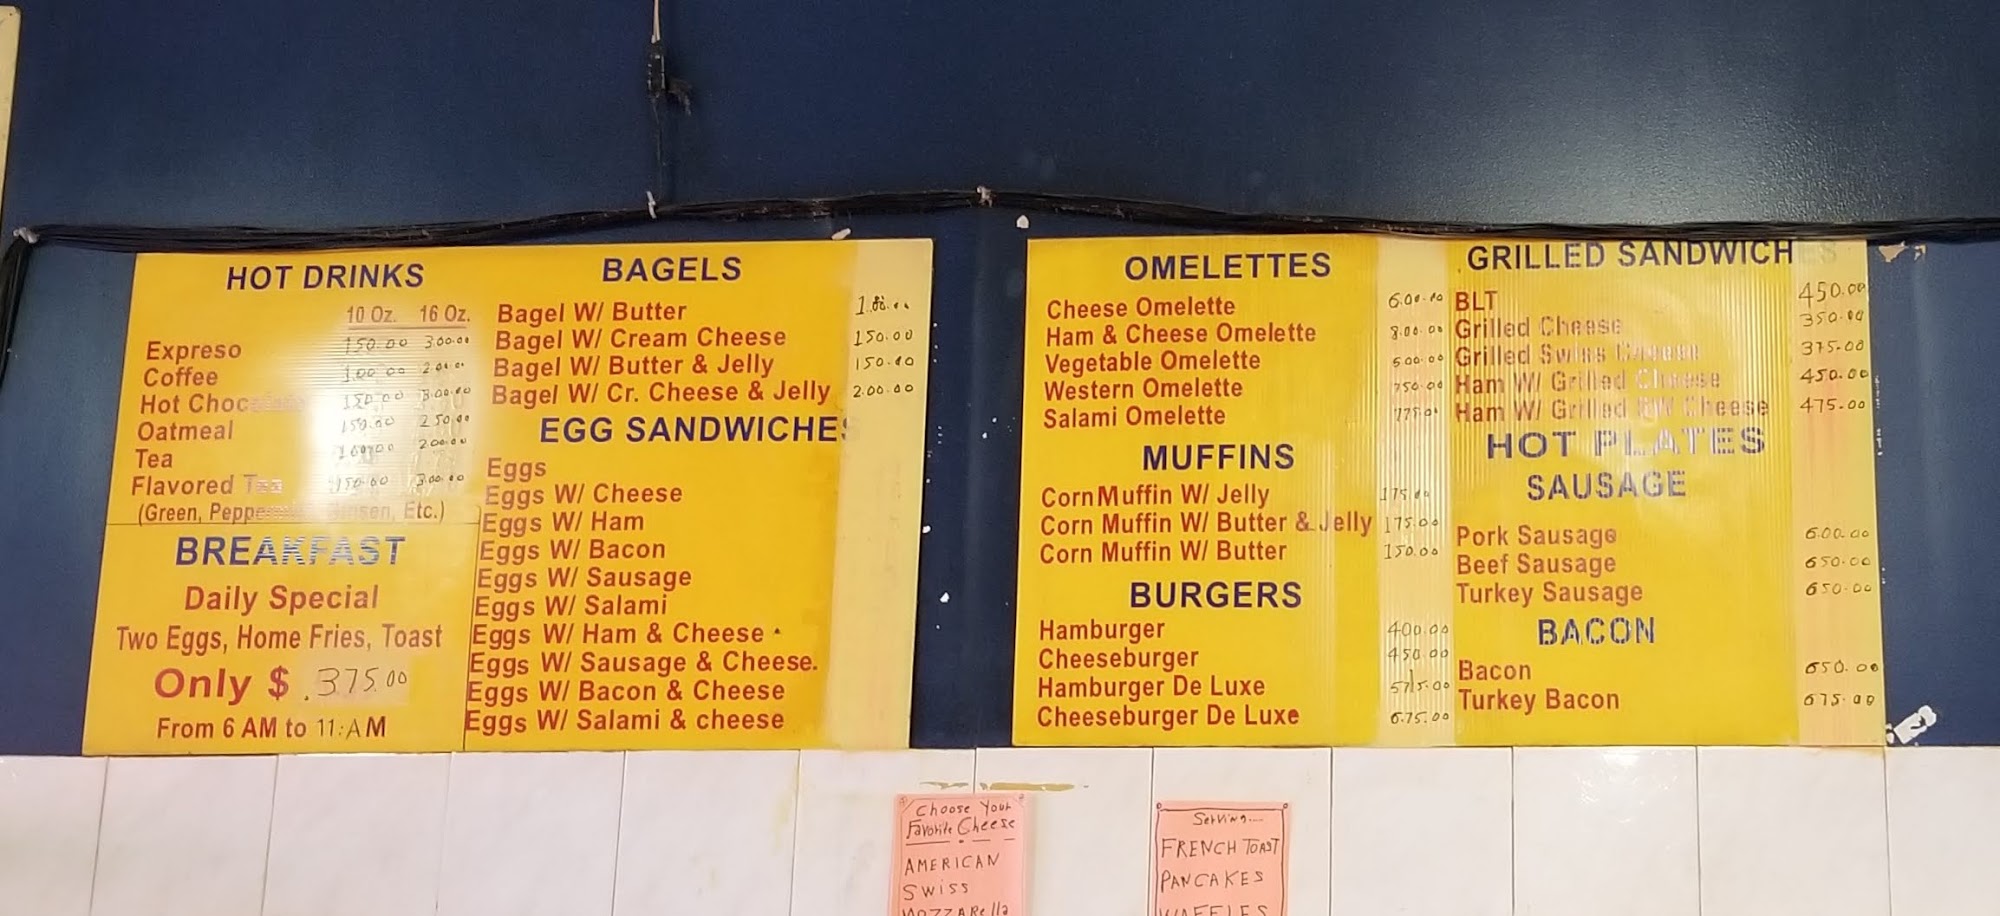 HOT DRINKS
10 Oz. 16 Oz.
Expreso 150.00 300.00
Coffee 100.00 200.00
Hot 150.00 300.00
Oatmeal 150.00 250.00
Tea 100.00 200.00
Flavored Tea 150.00 300.00
(Green, Etc.)
BREAKFAST
Daily Special
Two Eggs, Home Fries, Toast
Only $ .375.00
From 6 AM to 11:AM
BAGELS
Bagel W/ Butter
Bagel W/ Cream Cheese 150.00
Bagel W/ Butter & Jelly 150.00
Bagel W/ Cr. Cheese & Jelly 200.00
EGG SANDWICHES
Eggs
Eggs W/ Cheese
Eggs W/ Ham
Eggs W/ Bacon
Eggs W/ Sausage
Eggs W/ Salami
Eggs W/ Ham & Cheese
Eggs W/ Sausage & Cheese.
Eggs W/ Bacon & Cheese
Eggs W/ Salami & cheese
OMELETTES
Cheese Omelette 600.00
Ham & Cheese Omelette 800.00
Vegetable Omelette 500.00
Western Omelette 750.00
Salami Omelette
MUFFINS
Corn Muffin W/ Jelly 175.00
Corn Muffin W/ Butter & Jelly 175.00
Corn Muffin W/ Butter 150.00
BURGERS
Hamburger 400.00
Cheeseburger 450.00
Hamburger De Luxe
Cheeseburger De Luxe 675.00
GRILLED SANDWICHES
BLT 450.00
Grilled Cheese 350.00
Grilled Swiss Cheese 375.00
Ham W/ Grilled Cheese 450.00
Ham W/ Grilled SW Cheese 475.00
HOT PLATES
SAUSAGE
Pork Sausage 600.00
Beef Sausage 650.00
Turkey Sausage 650.00
BACON
Bacon 650.00
Turkey Bacon 675.00
Choose Your
Favorite Cheese
AMERICAN
SWISS
MOZZARella
Serving....
FRENCH TOAST
PANCAKES
WAFFLES